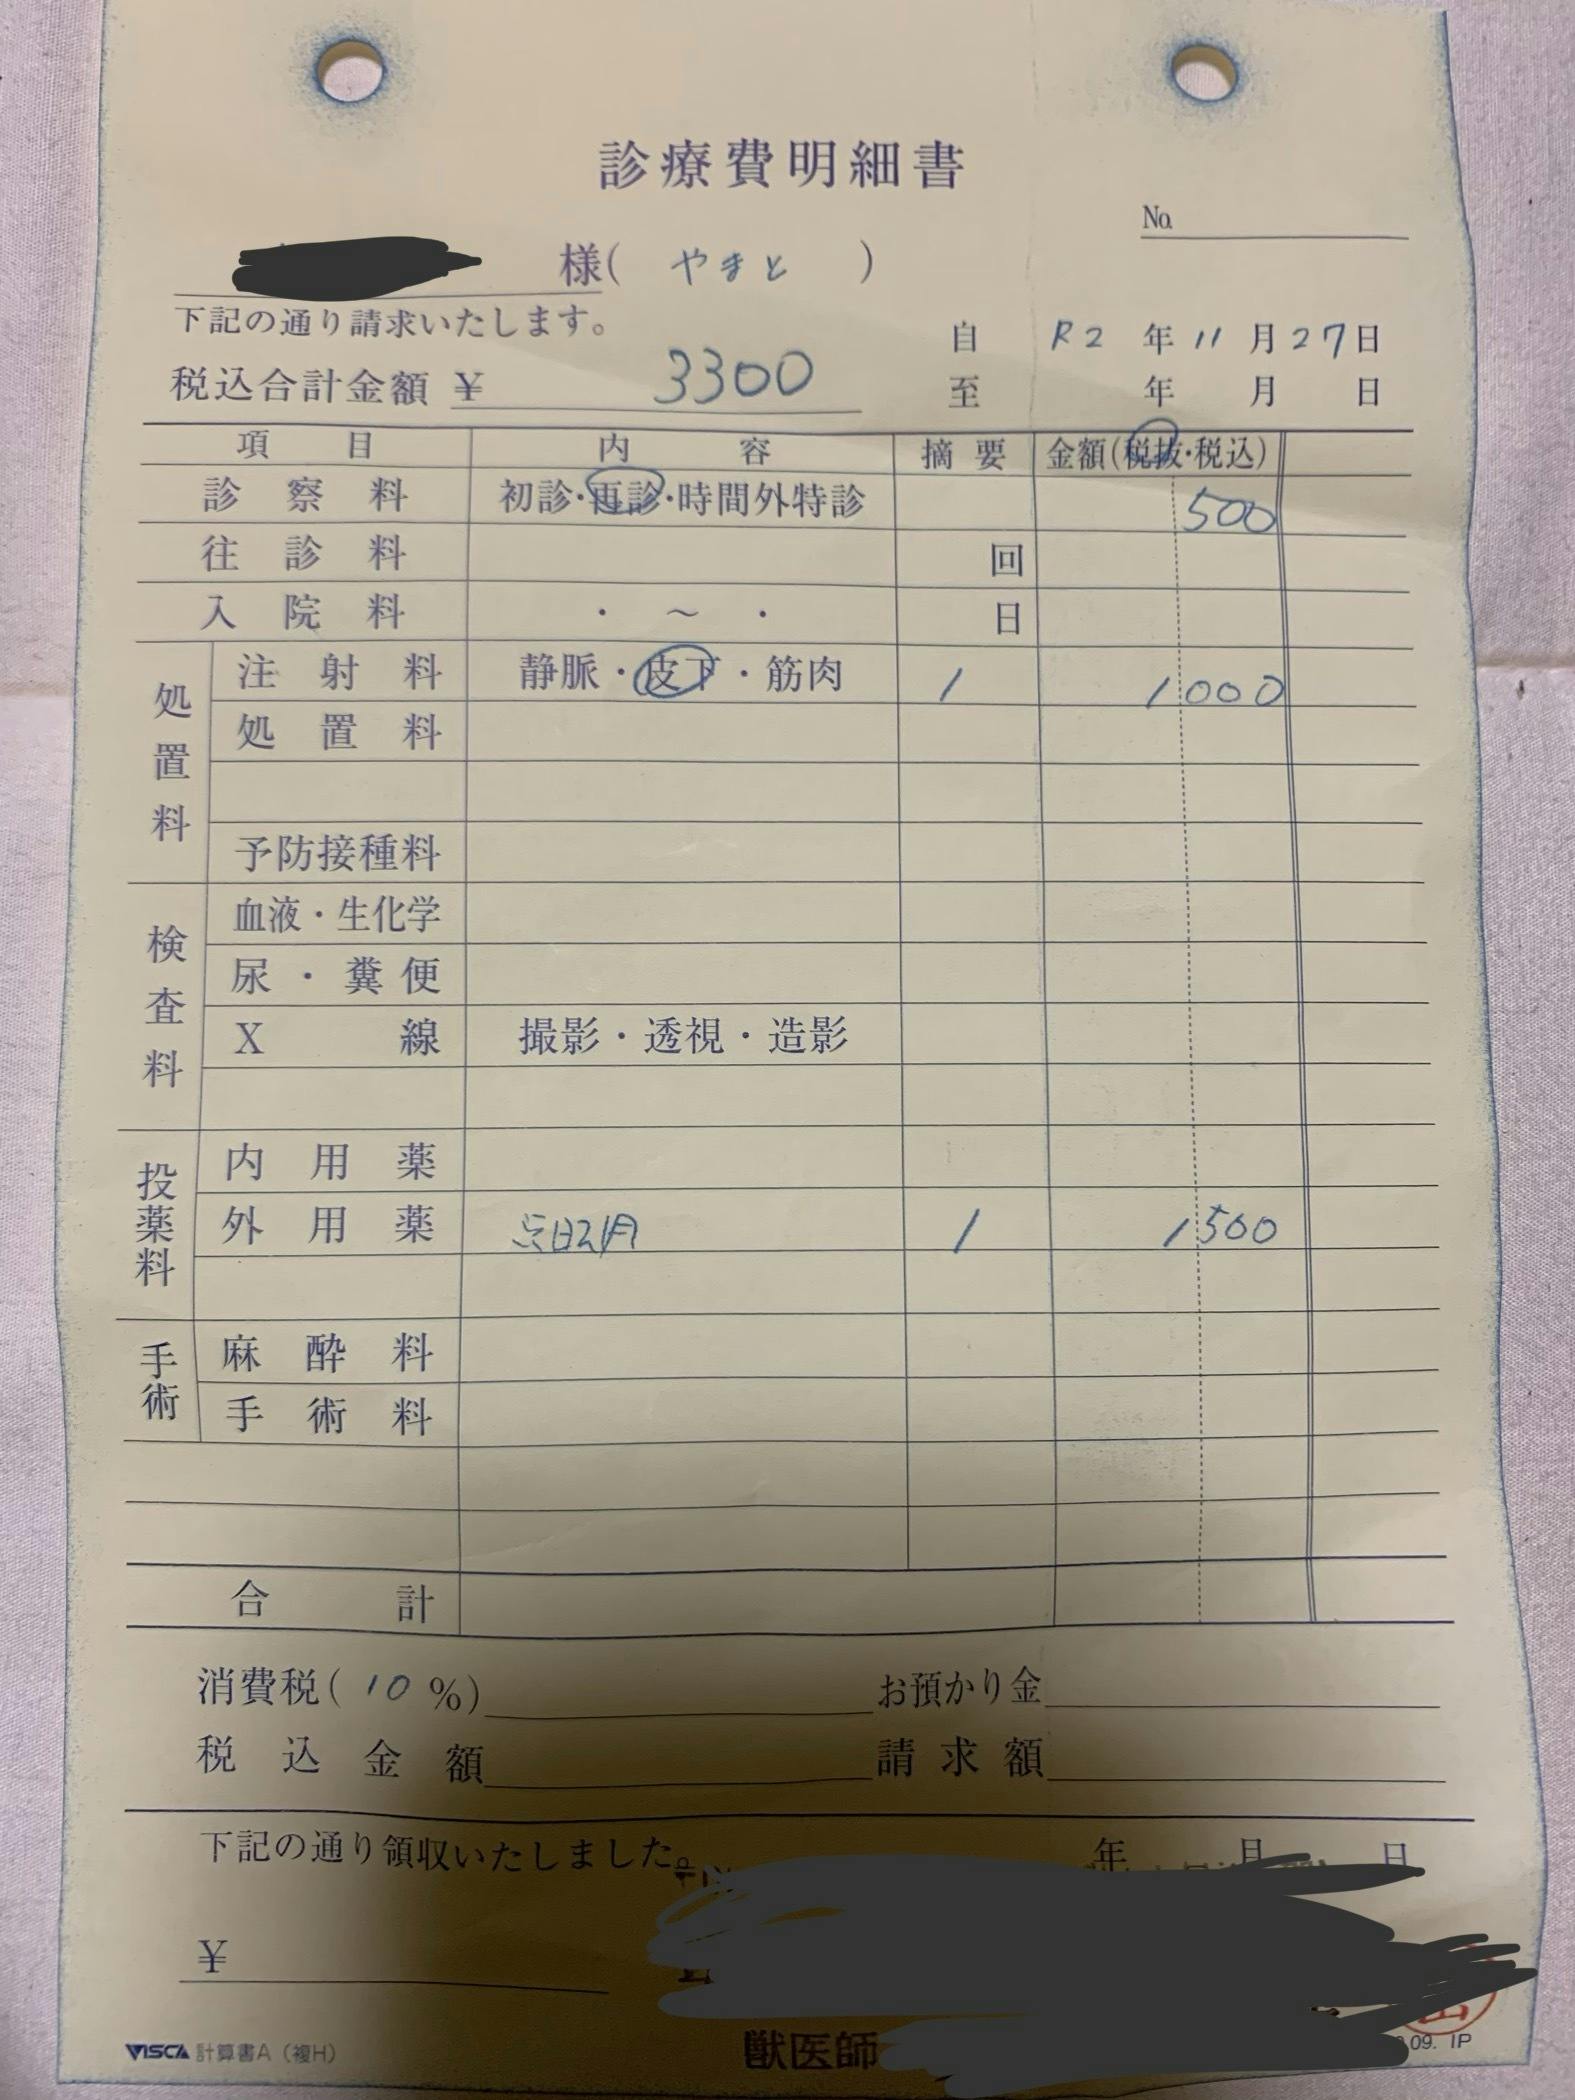 診療費明細書
No.
様( やまと )
下記の通り請求いたします。
自 R2 年 11 月 27 日
税込合計金額 ¥ 3300
至 年 月 日
項目 内容 摘要 金額(税抜・税込)
診察料 初診・再診・時間外特診 500
往診料 回
入院料 ・ ～ ・ 日
処置料
注射料 静脈・皮下・筋肉 1 1000
処置料
予防接種料
検査料
血液・生化学
尿・糞便
X線 撮影・透視・造影
投薬料
内用薬
外用薬 1 1500
手術
麻酔料
手術料
合計
消費税( 10 %) お預かり金
税込金額 請求額
下記の通り領収いたしました。 年 月 日
¥
獣医師
VISCA 計算書A（複H） 09. IP